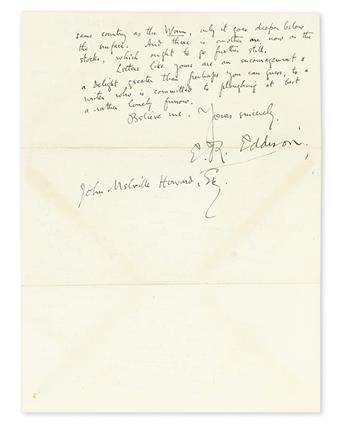 same country as the Worm, only it goes deeper below
the surface. And there is another one now on the
stocks, which ought to go further still.
Letters like yours are an encouragement &
a delight greater than perhaps you can guess, to a
writer who is committed to ploughing at best
a rather lonely furrow.
Believe me, Yours sincerely,
E. R. Eddison
John Melville Howard, Esq